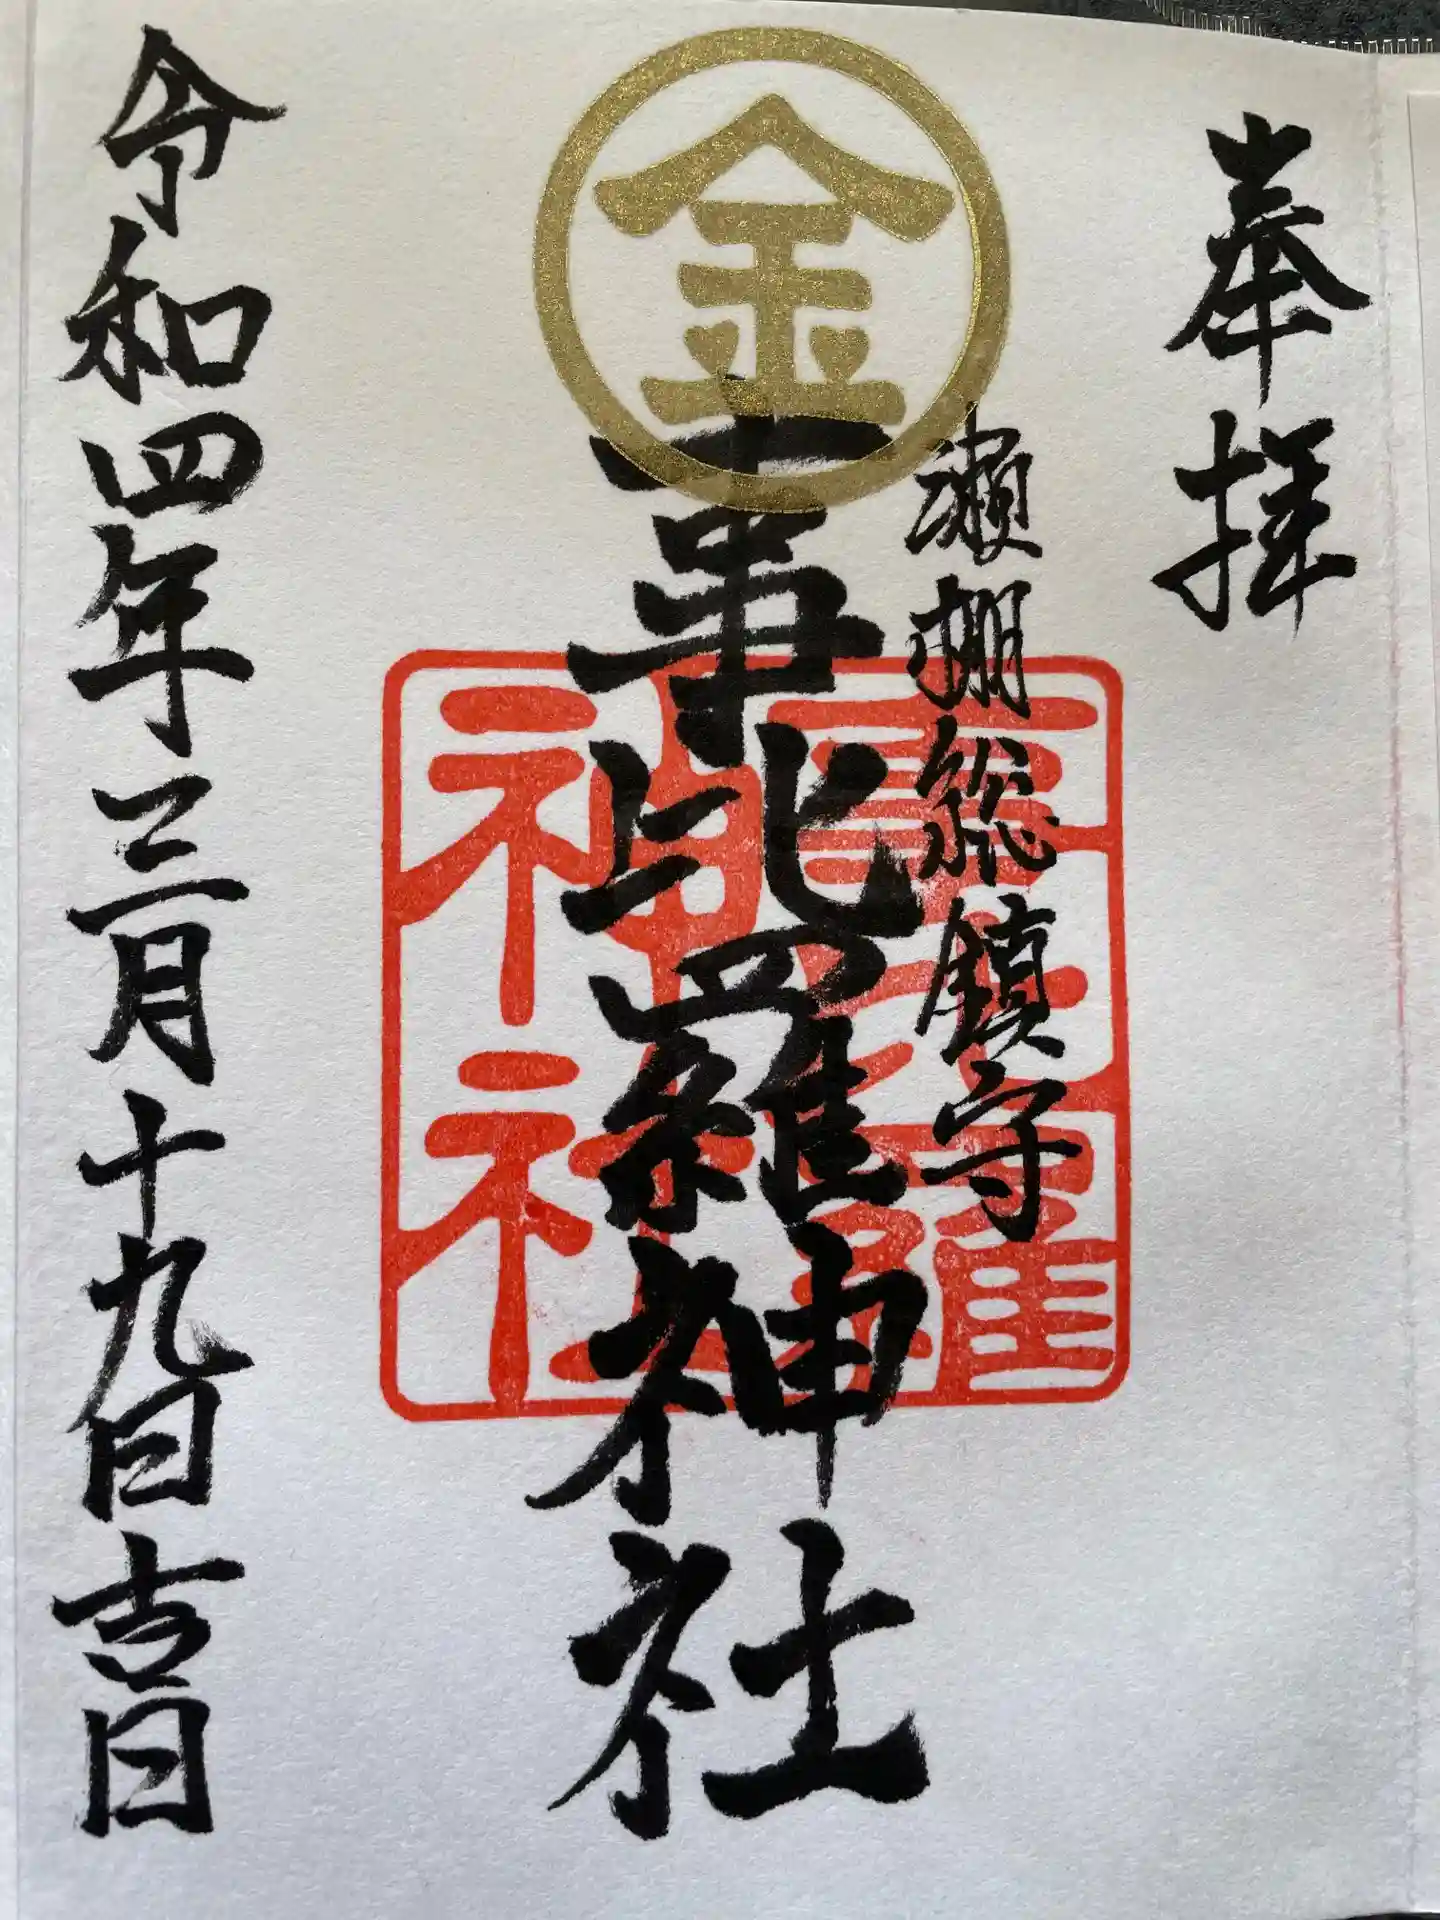 奉拝
瀬棚総鎮守
金
事比羅神社
事比羅神社
令和四年三月十九日吉日